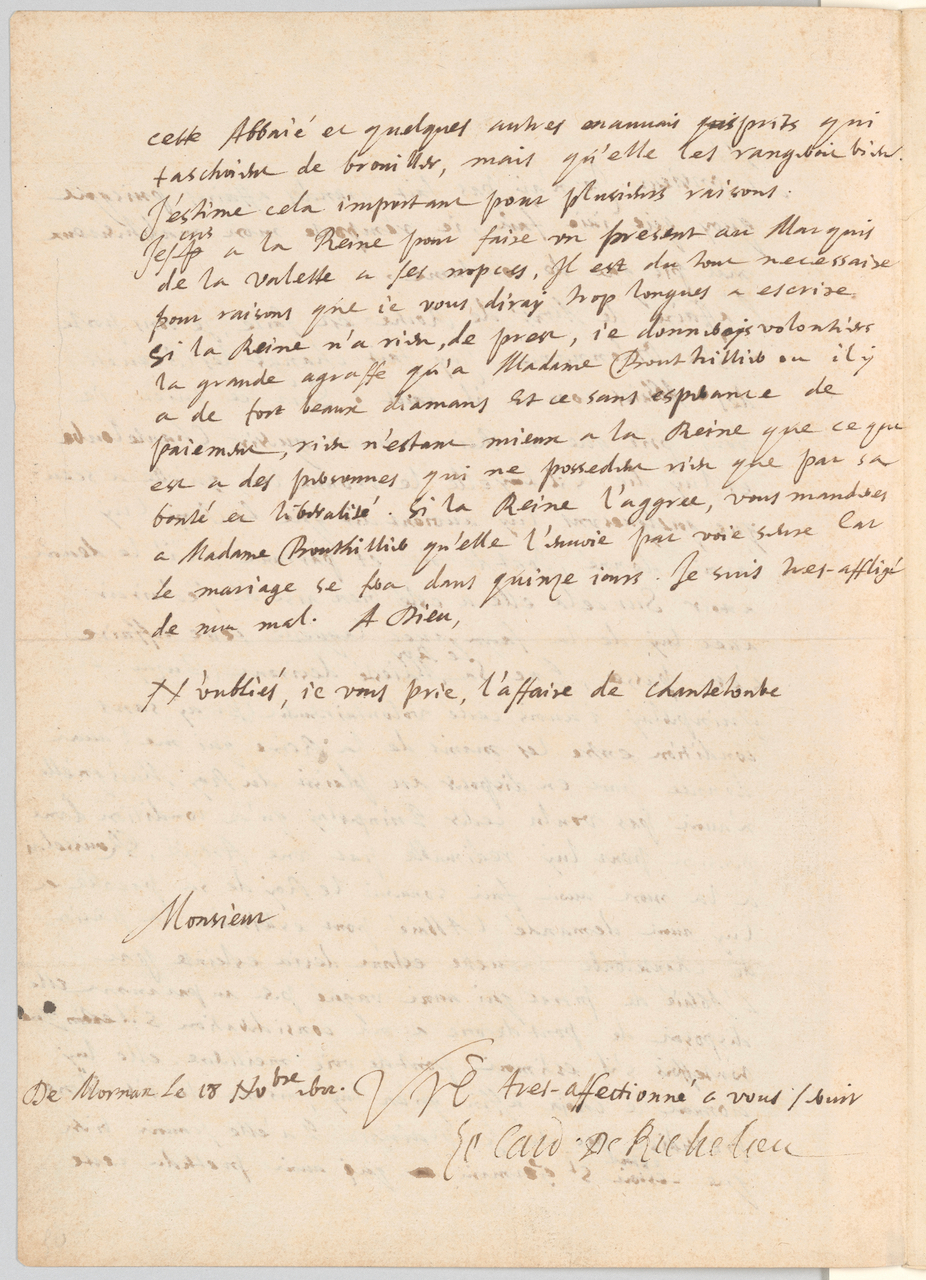 cette Abbaié et quelques autres mauuais esprits qui
taschoient de brouiller, mais qu'elle les rangeoit bien.
J'estime cela important pour plusieurs raisons.
J'escris a la Reine pour faire vn present au Marquis
de la valette a ses nopces, Il est du tout necessaire
pour raisons que ie vous diray trop longues a escrire
Si la Reine n'a rien, de prest, ie donnerois volontiers
la grande agraffe qu'a Madame Bouthillier ou il y
a de fort beaux diamans et ce sans esperance de
paiement, rien n'estant mieux a la Reine que ce qui
est a des personnes qui ne possedent rien que par sa
bonté et liberalité. Si la Reine l'aggree, vous manderes
a Madame Bouthillier qu'elle l'enuoie par voie seure Car
le mariage se fera dans quinze iours. Je suis tres-affligé
de mal. A Dieu,
N'oubliés, ie vous prie, l'affaire de Chanteloube
Monsieur
De Mornan le 18 Nobre
tres-affectionné a vous seruir
le Card. De Richelieu